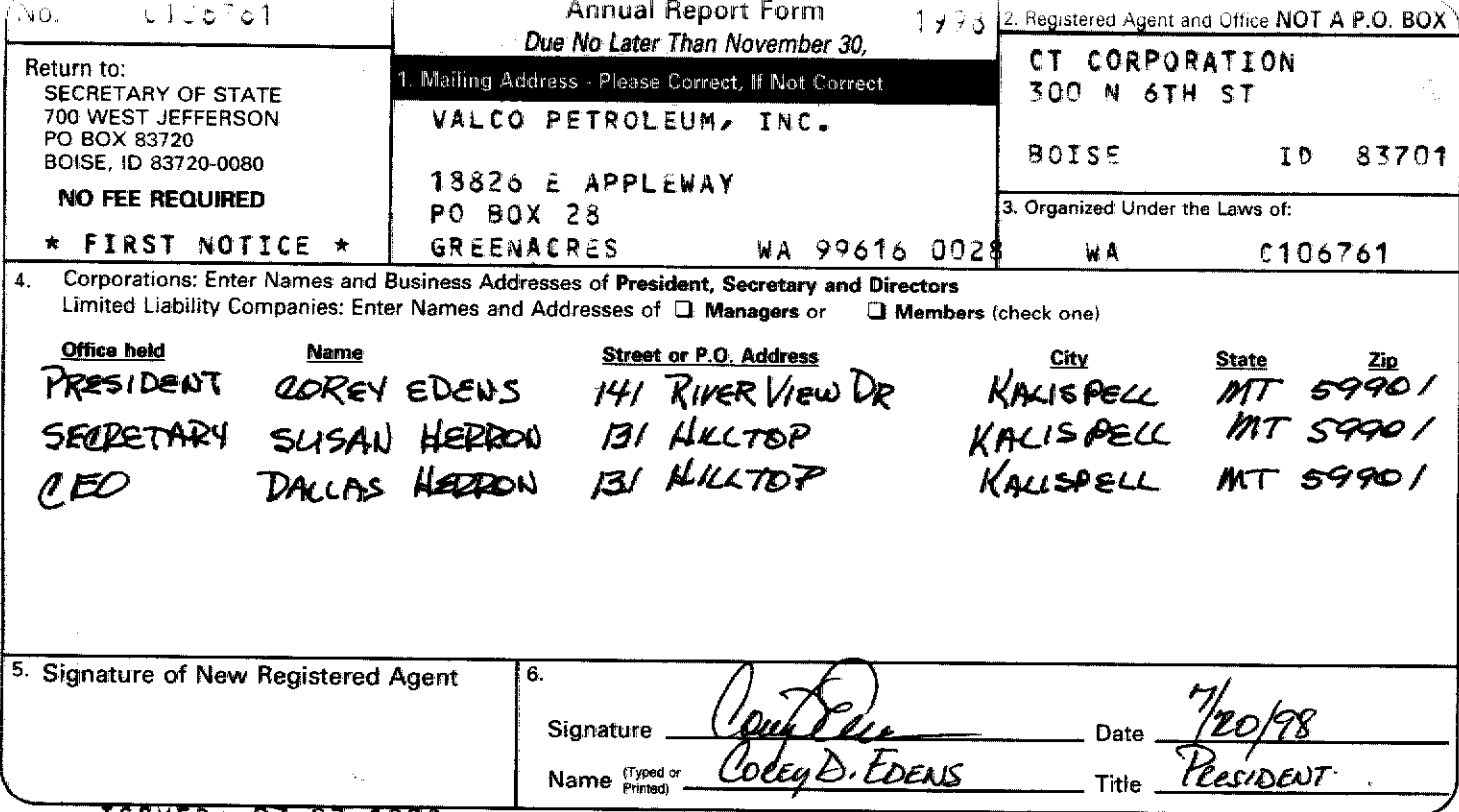 No. C106761
Annual Report Form 1998
Due No Later Than November 30,
Return to:
SECRETARY OF STATE
700 WEST JEFFERSON
PO BOX 83720
BOISE, ID 83720-0080
NO FEE REQUIRED
* FIRST NOTICE *
1. Mailing Address - Please Correct, If Not Correct
VALCO PETROLEUM, INC.
18826 E APPLEWAY
PO BOX 28
GREENACRES WA 99616 0028
2. Registered Agent and Office NOT A P.O. BOX
CT CORPORATION
300 N 6TH ST
BOISE ID 83701
3. Organized Under the Laws of:
WA C106761
4. Corporations: Enter Names and Business Addresses of President, Secretary and Directors
Limited Liability Companies: Enter Names and Addresses of ❑ Managers or ❑ Members (check one)
Office held Name Street or P.O. Address City State Zip
PRESIDENT COREY EDENS 141 RIVER VIEW DR KALISPELL MT 59901
SECRETARY SUSAN HERRON 131 HILLTOP KALISPELL MT 59901
CEO DALLAS HERRON 131 HILLTOP KALISPELL MT 59901
5. Signature of New Registered Agent
6.
Signature Date 7/20/98
Name (Typed or Printed) COREY D. EDENS Title PRESIDENT